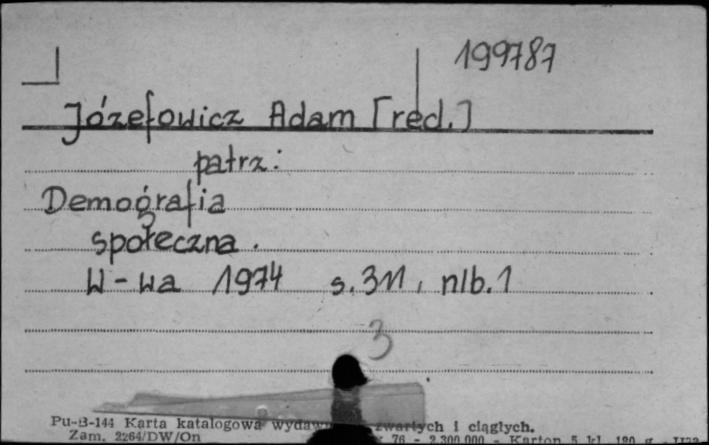 199787
Józefowicz Adam [red.]
patrz:
Demografia
społeczna.
W-wa 1974 s. 311, nlb. 1
3
Pu-B-144 Karta katalogowa wydaw zwartych i ciągłych.
Zam. 2264/DW/On 76 - 2.300.000 - Karton 5 kl. 180 g